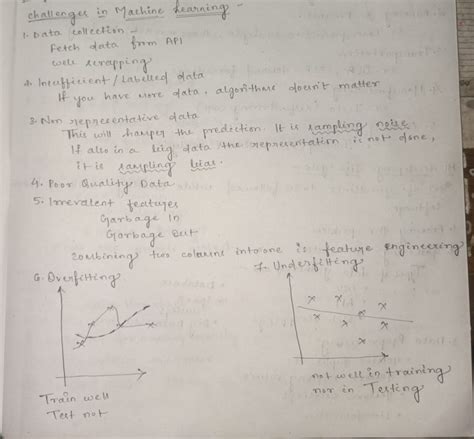 challenges in Machine Learning -
1. Data collection -
Fetch data from API
web scrapping
2. Insufficient / Labelled data
If you have more data, algorithms doesn't matter
3. Non representative data
This will hamper the prediction. It is sampling noise
If also in a big data the representation is not done,
it is sampling bias.
4. Poor Quality Data
5. Irrevalent features
Garbage In
Garbage Out
combining two columns into one is feature Engineering
6. Overfitting
7. Underfitting
Train well
Test not
not well in training
nor in Testing